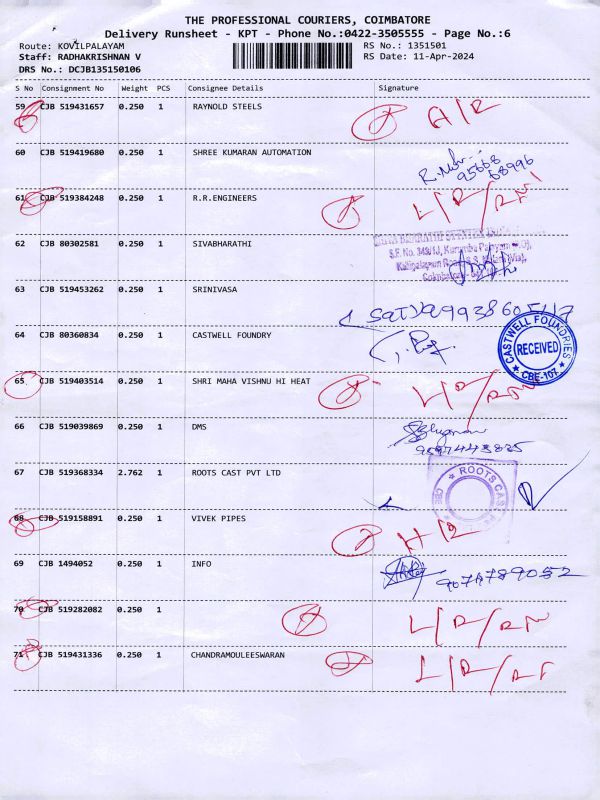 THE PROFESSIONAL COURIERS, COIMBATORE
Delivery Runsheet - KPT - Phone No.:0422-3505555 - Page No.:6
Route: KOVILPALAYAM RS No.: 1351501
Staff: RADHAKRISHNAN V RS Date: 11-Apr-2024
DRS No.: DCJB135150106
S No Consignment No Weight PCS Consignee Details Signature
59 CJB 519431657 0.250 1 RAYNOLD STEELS
60 CJB 519419680 0.250 1 SHREE KUMARAN AUTOMATION
95668
68996
61 CJB 519384248 0.250 1 R.R.ENGINEERS L/R/RN
62 CJB 80302581 0.250 1 SIVABHARATHI
63 CJB 519453262 0.250 1 SRINIVASA
64 CJB 80360834 0.250 1 CASTWELL FOUNDRY
CASTWELL FOUNDRIES
RECEIVED
CBE-107
65 CJB 519403514 0.250 1 SHRI MAHA VISHNU HI HEAT L/R/RN
66 CJB 519039869 0.250 1 DMS
67 CJB 519368334 2.762 1 ROOTS CAST PVT LTD
ROOTS CAST
CBE
68 CJB 519158891 0.250 1 VIVEK PIPES
69 CJB 1494052 0.250 1 INFO
70 CJB 519282082 0.250 1 L/R/RN
71 CJB 519431336 0.250 1 CHANDRAMOULEESWARAN